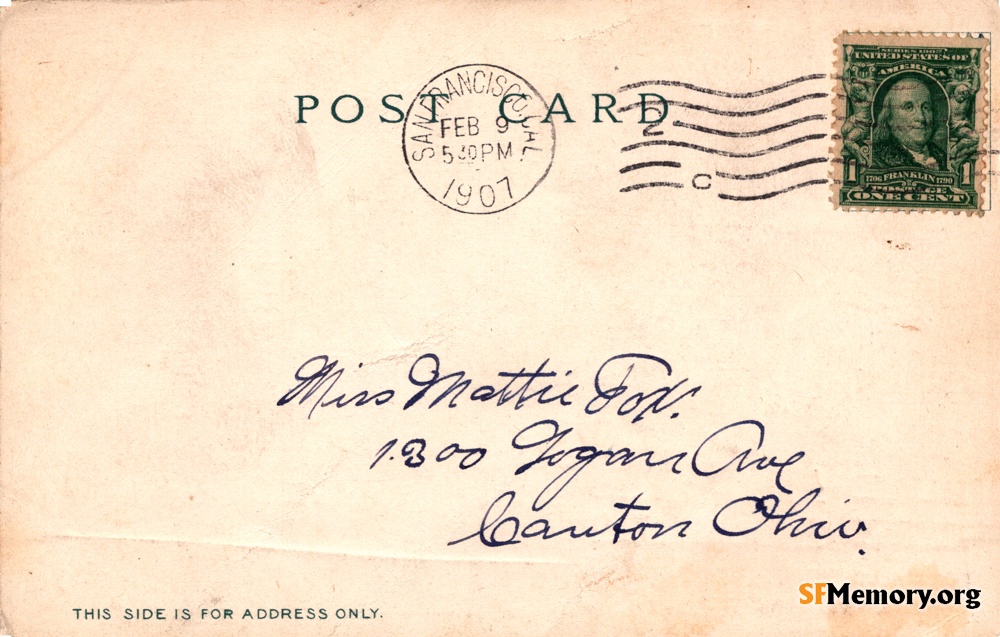 POST CARD
SAN FRANCISCO, CAL.
FEB 9
5 30 PM
1907
2
C
SERIES 1902
UNITED STATES OF
AMERICA
1 1706 FRANKLIN 1790 1
POSTAGE
ONE CENT
Miss Mattie Fox.
1300 Logan Ave
Canton Ohio.
THIS SIDE IS FOR ADDRESS ONLY.
SFMemory.org